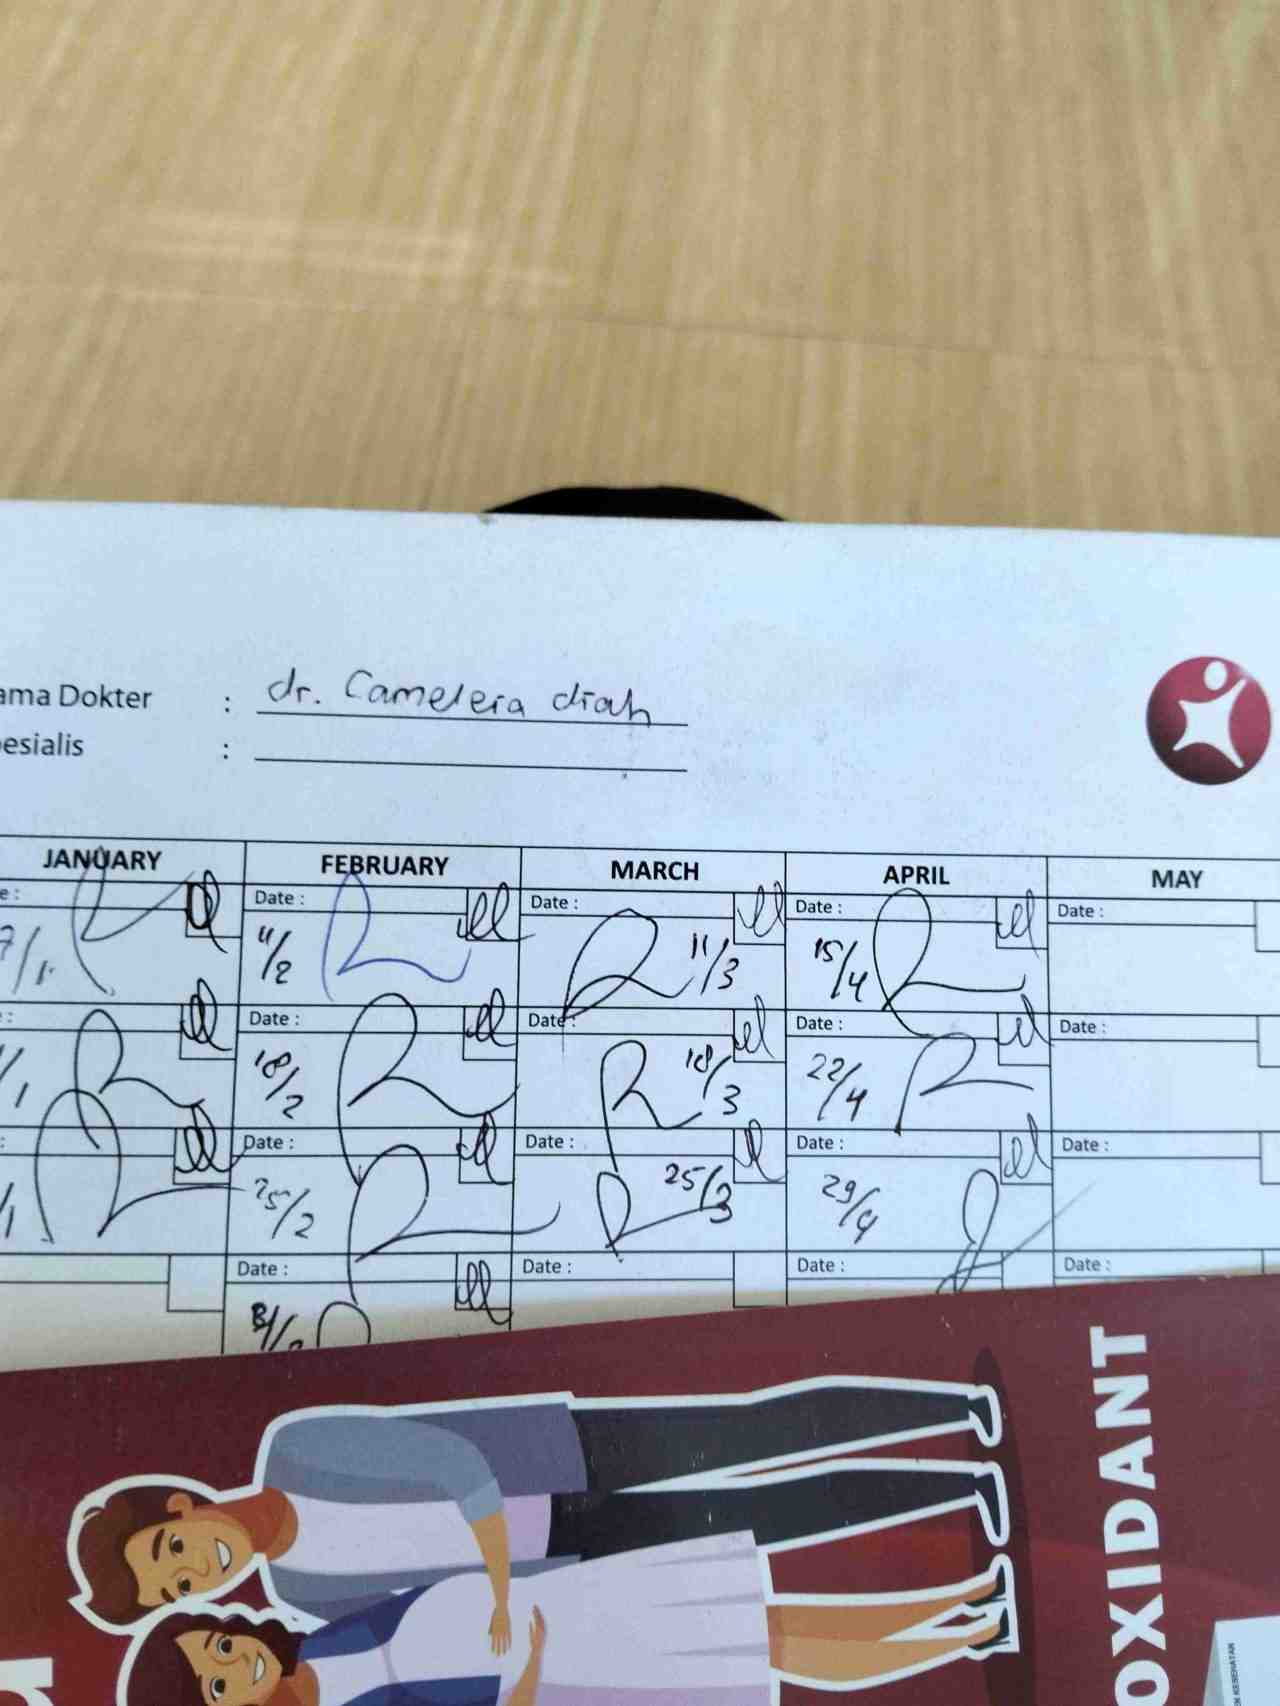 ama Dokter : dr. Camelera diah
esialis :
JANUARY FEBRUARY MARCH APRIL MAY
e : Date : Date : Date : Date :
7/1 11/2 11/3 15/4
: Date : Date : Date : Date :
/1 18/2 18/3 22/4
: Date : Date : Date : Date :
/1 25/2 25/3 29/4
Date : Date : Date : Date :
OXIDANT
KESEHATAN